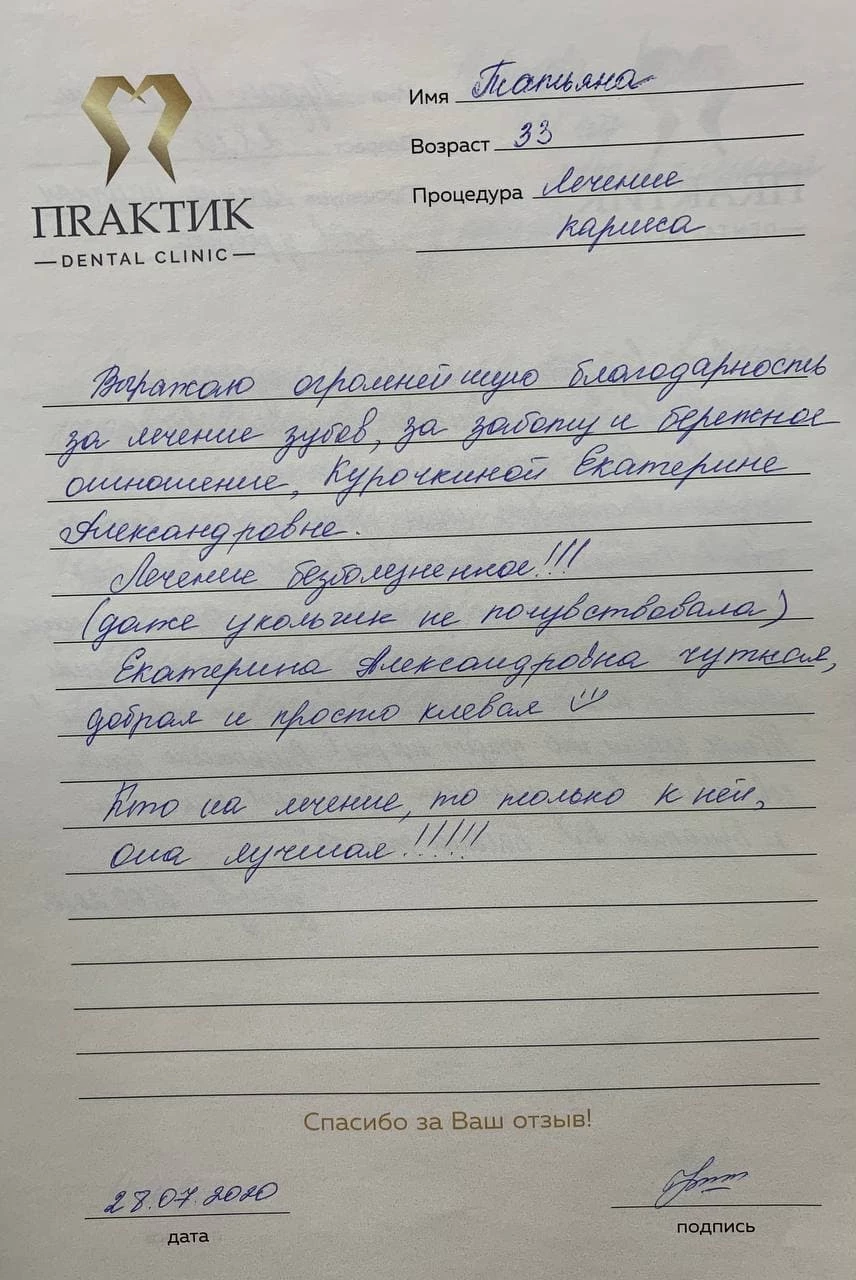 ПRАКТИК
DENTAL CLINIC
Имя Татьяна
Возраст 33
Процедура Лечение
кариеса
Выражаю огромнейшую благодарность
за лечение зубов, за заботу и бережное
отношение, Курочкиной Екатерине
Александровне.
Лечение безболезненное!!!
(даже укольчик не почувствовала)
Екатерина Александровна чуткая,
добрая и просто клевая
Кто на лечение, то только к ней,
она лучшая!!!!!!
Спасибо за Ваш отзыв!
28.07.2020
дата
подпись